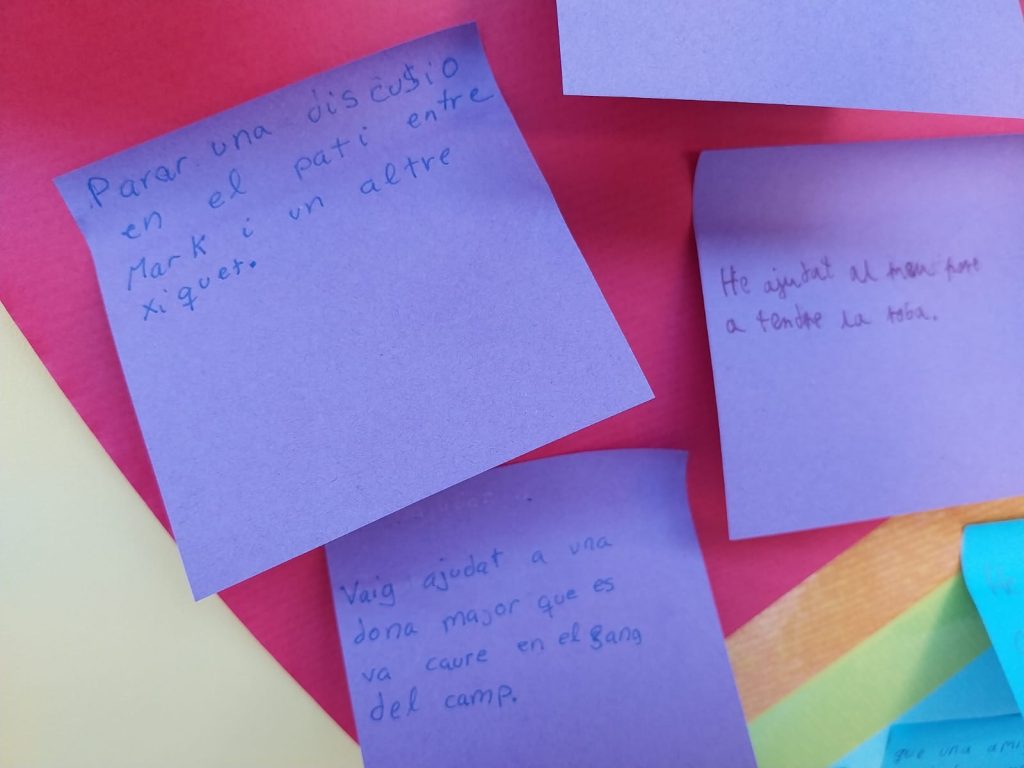 Parar una discusio
en el pati entre
Mark i un altre
xiquet.
He ajudat al meu pare
a tendre la roba.
Vaig ajudat a una
dona major que es
va caure en el gang
del camp.
que una ami